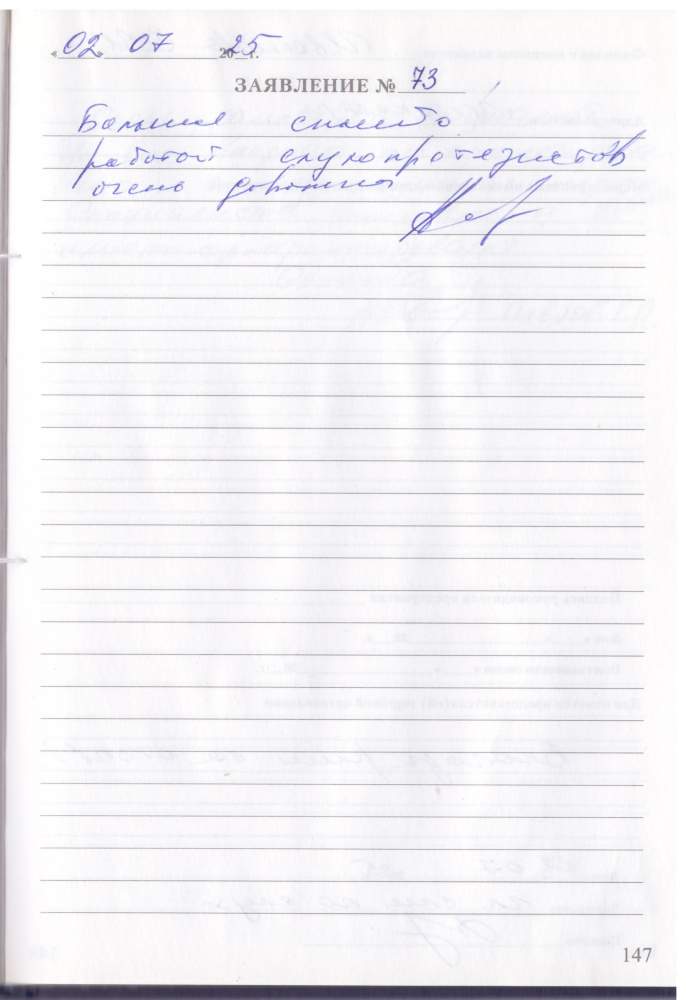 «02» 07 2025 г.
ЗАЯВЛЕНИЕ № 73
Большое спасибо
работой слухопротезистов
очень
147